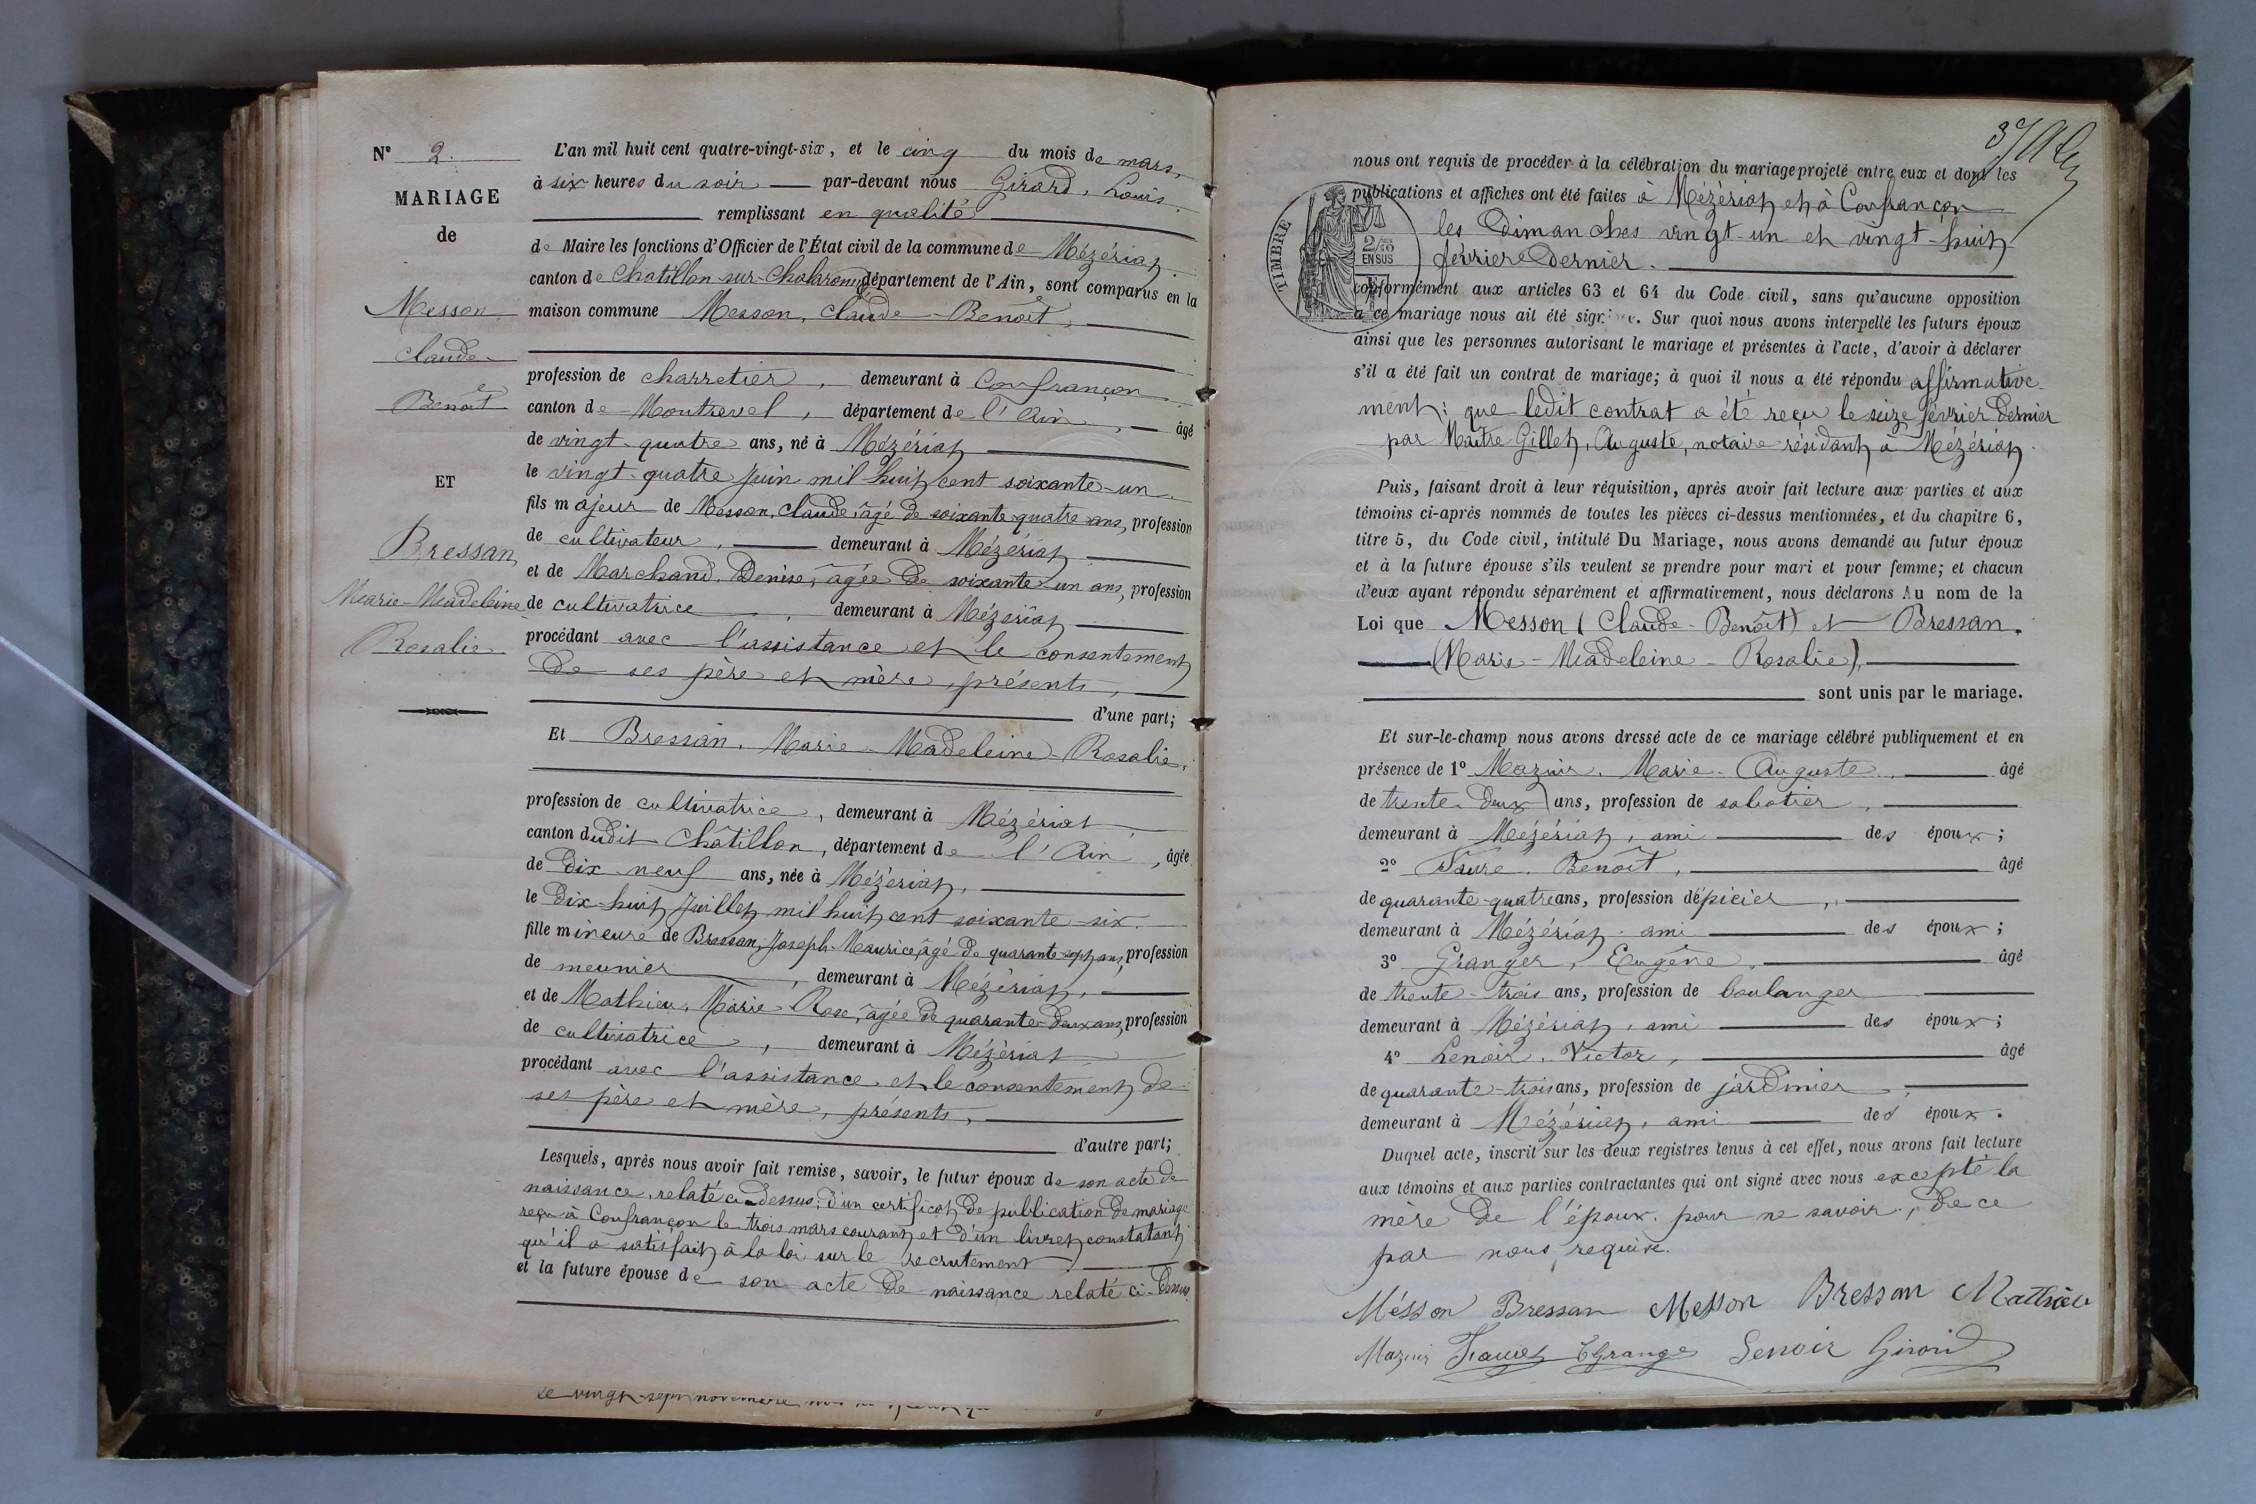 N° 2.
MARIAGE
de
Messon
Claude
Benoît
ET
Bressan,
Marie-Madeleine
Rosalie
L'an mil huit cent quatre-vingt-six, et le cinq du mois de mars,
à six heures du soir par-devant nous Girard, Louis,
remplissant en qualité
de Maire les fonctions d'Officier de l'État civil de la commune de Mézériat,
canton de Chatillon-sur-Chalaronne département de l'Ain, sont comparus en la
maison commune Messon, Claude-Benoît,
profession de charretier, demeurant à Confrançon
canton de Montrevel, département de l'Ain, âgé
de vingt-quatre ans, né à Mézériat
le vingt-quatre juin mil huit cent soixante-un
fils majeur de Messon, Claude, âgé de soixante-quatre ans, profession
de cultivateur, demeurant à Mézériat
et de Marchand, Denise, âgée de soixante-un ans, profession
de cultivatrice, demeurant à Mézériat
procédant avec l'assistance et le consentement
de ses père et mère, présents,
d'une part;
Et Bressan, Marie-Madeleine-Rosalie,
profession de cultivatrice, demeurant à Mézériat
canton dudit Châtillon, département de l'Ain, âgée
de dix neuf ans, née à Mézériat,
le dix-huit juillet mil huit cent soixante-six.
fille mineure de Bressan, Joseph-Maurice, âgé de quarante-sept ans, profession
de meunier, demeurant à Mézériat,
et de Mathieu, Marie-Rose, âgée de quarante-deux ans, profession
de cultivatrice, demeurant à Mézériat
procédant avec l'assistance et le consentement de
ses père et mère, présents,
d'autre part;
Lesquels, après nous avoir fait remise, savoir, le futur époux de son acte de
naissance, relaté ci-dessus; d'un certificat de publication de mariage
reçu à Confrançon le trois mars courant et d'un livret constatant
qu'il a satisfait à la loi sur le recrutement
et la future épouse de son acte de naissance relaté ci-dessus
le vingt-sept novembre
37
nous ont requis de procéder à la célébration du mariage projeté entre eux et dont les
publications et affiches ont été faites à Mézériat et à Confrançon
les Dimanches vingt-un et vingt-huit
février dernier.
TIMBRE
2/10
EN SUS
conformément aux articles 63 et 64 du Code civil, sans qu'aucune opposition
à ce mariage nous ait été signifiée. Sur quoi nous avons interpellé les futurs époux
ainsi que les personnes autorisant le mariage et présentes à l'acte, d'avoir à déclarer
s'il a été fait un contrat de mariage; à quoi il nous a été répondu affirmative-
ment: que ledit contrat a été reçu le seize février dernier
par Maître Gillet, Auguste, notaire résidant à Mézériat.
Puis, faisant droit à leur réquisition, après avoir fait lecture aux parties et aux
témoins ci-après nommés de toutes les pièces ci-dessus mentionnées, et du chapitre 6,
titre 5, du Code civil, intitulé Du Mariage, nous avons demandé au futur époux
et à la future épouse s'ils veulent se prendre pour mari et pour femme; et chacun
d'eux ayant répondu séparément et affirmativement, nous déclarons Au nom de la
Loi que Messon (Claude-Benoît) et Bressan.
(Marie-Madeleine-Rosalie),
sont unis par le mariage.
Et sur-le-champ nous avons dressé acte de ce mariage célébré publiquement et en
présence de 1° Mazuir, Marie-Auguste, âgé
de trente-deux ans, profession de sabotier,
demeurant à Mézériat, ami des époux;
2° Faure, Benoît, âgé
de quarante-quatre ans, profession d'épicier,
demeurant à Mézériat, ami des époux;
3° Granger, Eugène, âgé
de trente-trois ans, profession de boulanger
demeurant à Mézériat, ami des époux;
4° Lenoir, Victor, âgé
de quarante-trois ans, profession de jardinier,
demeurant à Mézériat, ami des époux.
Duquel acte, inscrit sur les deux registres tenus à cet effet, nous avons fait lecture
aux témoins et aux parties contractantes qui ont signé avec nous excepté la
mère de l'époux, pour ne savoir, de ce
par nous requise.
Mésson Bressan Messon Bressan Matthieu
Mazuir Faure EGrange Lenoir Girard